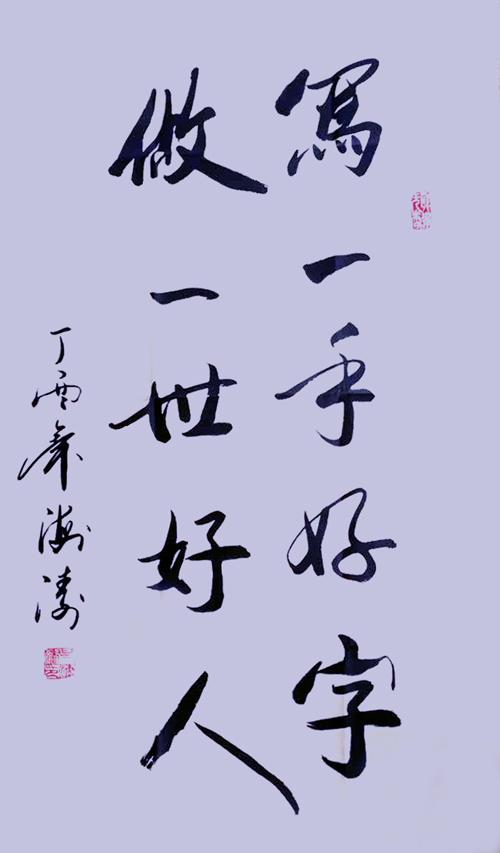 寫一手好字
做一世好人
丁酉年海濤